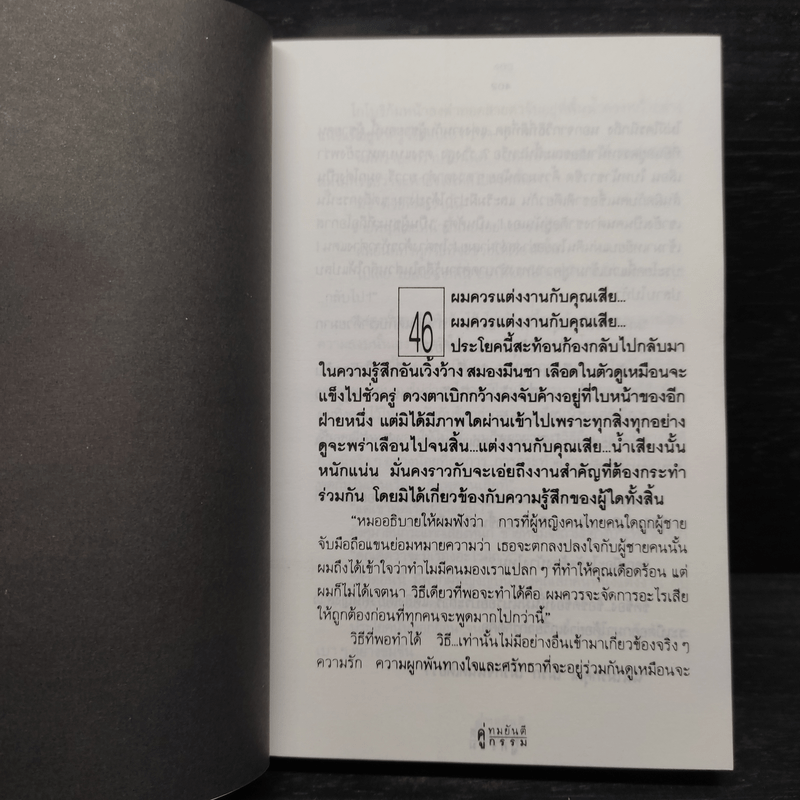 46
ผมควรแต่งงานกับคุณเสีย...
ผมควรแต่งงานกับคุณเสีย...
ประโยคนี้สะท้อนก้องกลับไปกลับมา
ในความรู้สึกอันเวิ้งว้าง สมองมึนชา เลือดในตัวดูเหมือนจะ
แข็งไปชั่วครู่ ดวงตาเบิกกว้างคงจับค้างอยู่ที่ใบหน้าของอีก
ฝ่ายหนึ่ง แต่มิได้มีภาพใดผ่านเข้าไปเพราะทุกสิ่งทุกอย่าง
ดูจะพร่าเลือนไปจนสิ้น...แต่งงานกับคุณเสีย...น้ำเสียงนั้น
หนักแน่น มั่นคงราวกับจะเอ่ยถึงงานสำคัญที่ต้องกระทำ
ร่วมกัน โดยมิได้เกี่ยวข้องกับความรู้สึกของผู้ใดทั้งสิ้น
"หมออธิบายให้ผมฟังว่า การที่ผู้หญิงคนไทยคนใดถูกผู้ชาย
จับมือถือแขนย่อมหมายความว่า เธอจะตกลงปลงใจกับผู้ชายคนนั้น
ผมถึงได้เข้าใจว่าทำไมมีคนมองเราแปลก ๆ ที่ทำให้คุณเดือดร้อน แต่
ผมก็ไม่ได้เจตนา วิธีเดียวที่พอจะทำได้คือ ผมควรจะจัดการอะไรเสีย
ให้ถูกต้องก่อนที่ทุกคนจะพูดมากไปกว่านี้"
วิธีที่พอทำได้ วิธี...เท่านั้นไม่มีอย่างอื่นเข้ามาเกี่ยวข้องจริง ๆ
ความรัก ความผูกพันทางใจและศรัทธาที่จะอยู่ร่วมกันดูเหมือนจะ
ทมยันตี
คู่กรรม